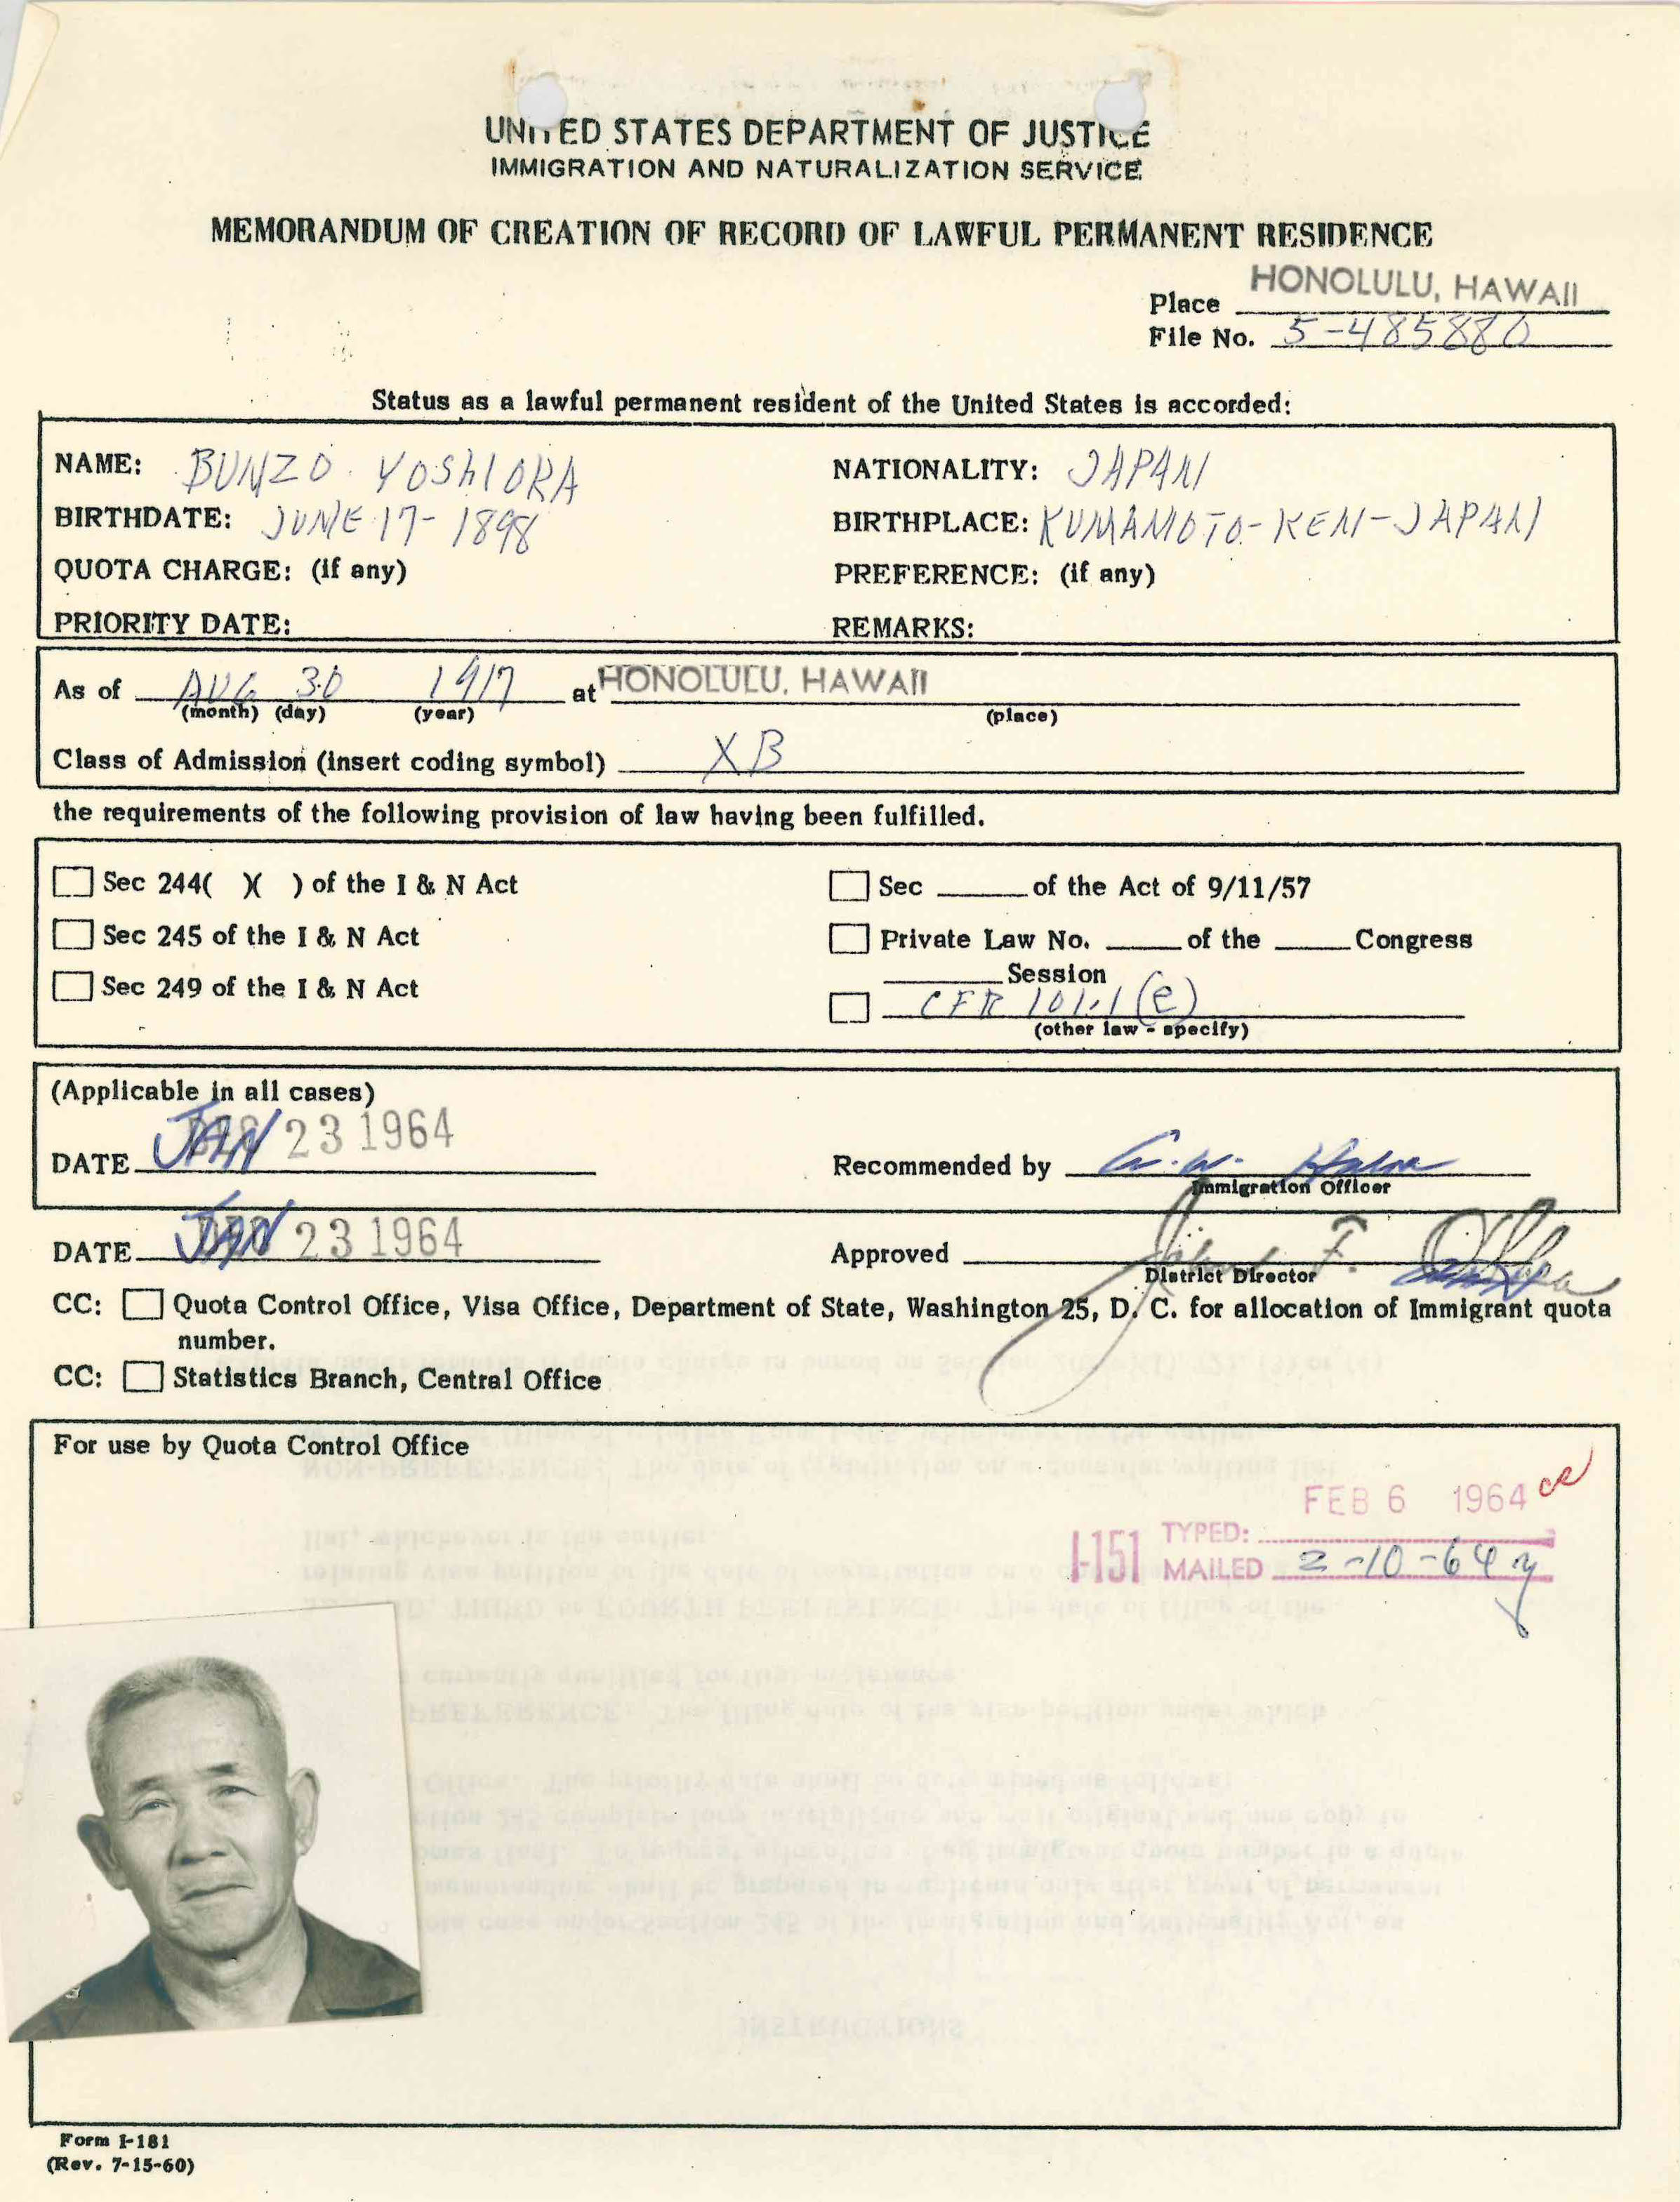 UNITED STATES DEPARTMENT OF JUSTICE
IMMIGRATION AND NATURALIZATION SERVICE
MEMORANDUM OF CREATION OF RECORD OF LAWFUL PERMANENT RESIDENCE
Place HONOLULU, HAWAII
File No. 5-485880
Status as a lawful permanent resident of the United States is accorded:
NAME: BUNZO YOSHIOKA NATIONALITY: JAPAN
BIRTHDATE: JUNE 17-1898 BIRTHPLACE: KUMAMOTO-KEN-JAPAN
QUOTA CHARGE: (if any) PREFERENCE: (if any)
PRIORITY DATE: REMARKS:
As of AUG 30 1917 at HONOLULU, HAWAII
(month) (day) (year) (place)
Class of Admission (insert coding symbol) XB
the requirements of the following provision of law having been fulfilled.
Sec 244( )( ) of the I & N Act Sec ____ of the Act of 9/11/57
Sec 245 of the I & N Act Private Law No. ____ of the ____ Congress
____ Session
Sec 249 of the I & N Act CFR 101.1(e)
(other law - specify)
(Applicable in all cases)
DATE JAN 23 1964 Recommended by
Immigration Officer
DATE JAN 23 1964 Approved John F. O'Shea
District Director
CC: Quota Control Office, Visa Office, Department of State, Washington 25, D. C. for allocation of Immigrant quota
number.
CC: Statistics Branch, Central Office
For use by Quota Control Office
FEB 6 1964
I-151 TYPED:
MAILED 2-10-64
Form I-181
(Rev. 7-15-60)